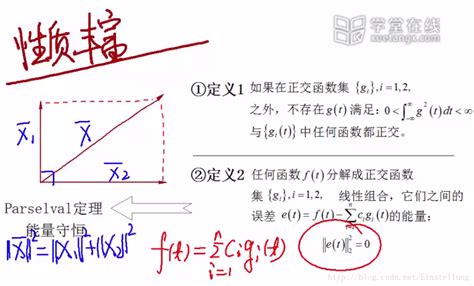 性质丰富
学堂在线
xuetangx.com
①定义1 如果在正交函数集 {gᵢ}, i = 1,2,
之外，不存在 g(t) 满足: 0 < ∫_{-∞}^{∞} g²(t)dt < ∞
与{gᵢ(t)} 中任何函数都正交。
X̄₁ X̄ X̄₂
②定义2 任何函数 f(t) 分解成正交函数
集 {gᵢ}, i = 1,2, 线性组合，它们之间的
误差 e(t) = f(t) − ∑ cᵢgᵢ(t)的能量:
‖e(t)‖₂² = 0
Parselval定理
能量守恒
‖X̄‖² = ‖X̄₁‖² + ‖X̄₂‖²
f(t) = ∑_{i=1}^{n} Cᵢ gᵢ(t)
http://blog.csdn.net/Einstellung